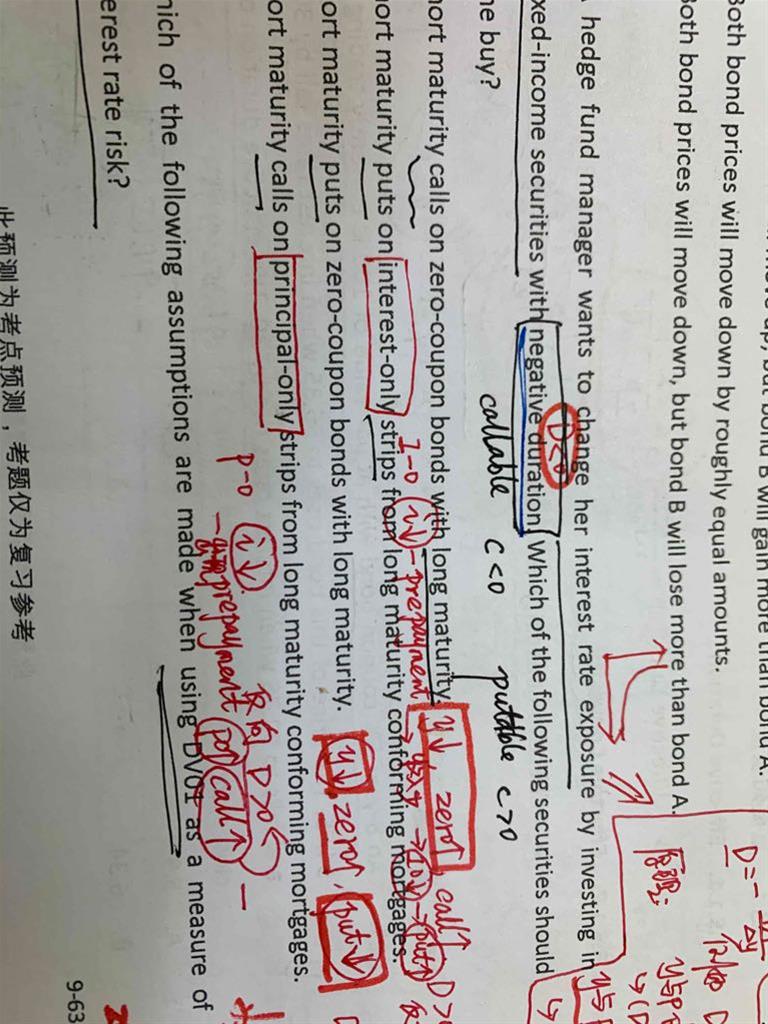 Both bond prices will move down by roughly equal amounts.
Both bond prices will move down, but bond B will lose more than bond A.
hedge fund manager wants to change her interest rate exposure by investing in
xed-income securities with negative duration. Which of the following securities should
he buy?
D<0
callable C<0 puttable C>0
ort maturity calls on zero-coupon bonds with long maturity.
y↓, zero↑, call↑ D>0
ort maturity puts on interest-only strips from long maturity conforming mortgages.
I-O i↓ - prepayment
ort maturity puts on zero-coupon bonds with long maturity.
y↓, zero↑, put↓
ort maturity calls on principal-only strips from long maturity conforming mortgages.
p-o i↓
prepayment po↑ call↑
反向 D>0
hich of the following assumptions are made when using DV01 as a measure of
erest rate risk?
9-63
此预测为考点预测，考题仅为复习参考